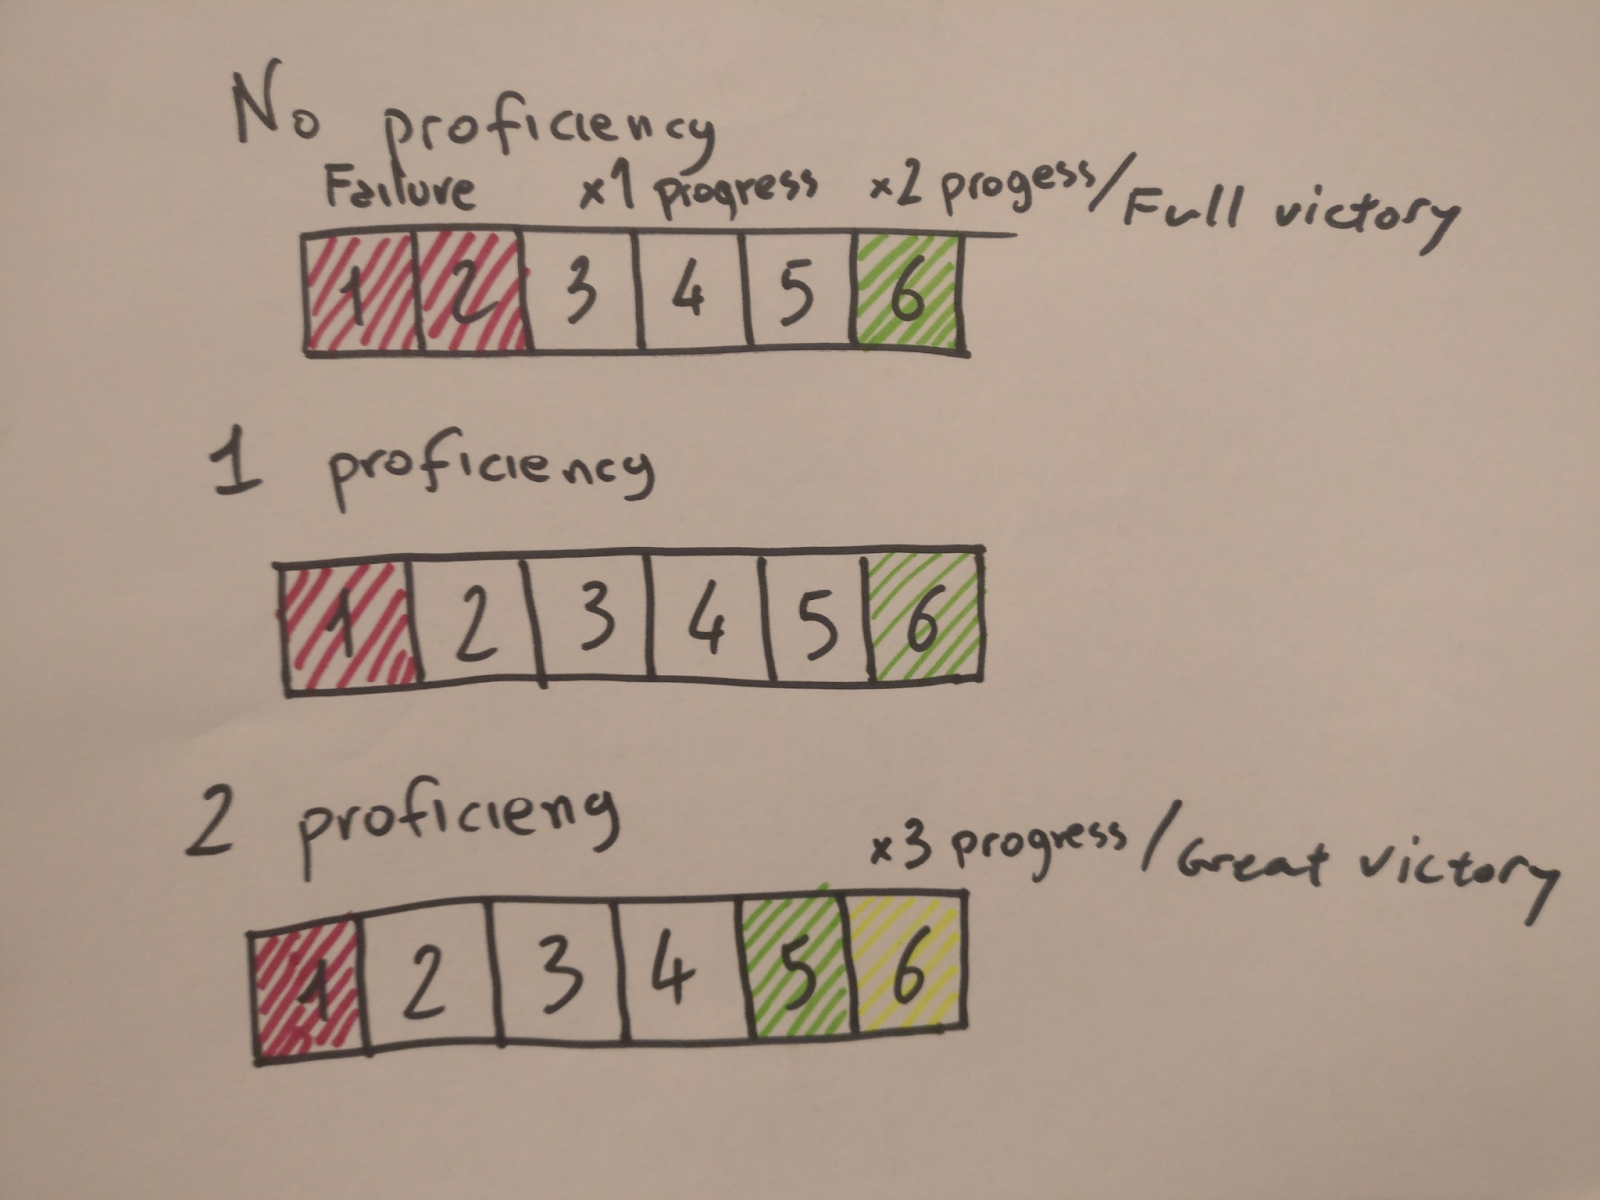 No proficiency
Failure x1 progress x2 progess/Full victory
1 2 3 4 5 6
1 proficiency
1 2 3 4 5 6
2 proficieny
x3 progress/Great victory
1 2 3 4 5 6